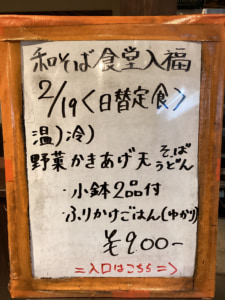 和そば食堂入福
2/19〈日替定食〉
温)冷)
野菜かきあげ天そばうどん
・小鉢2品付
・ふりかけごはん(ゆかり)
¥900-
=入口はこちら=>